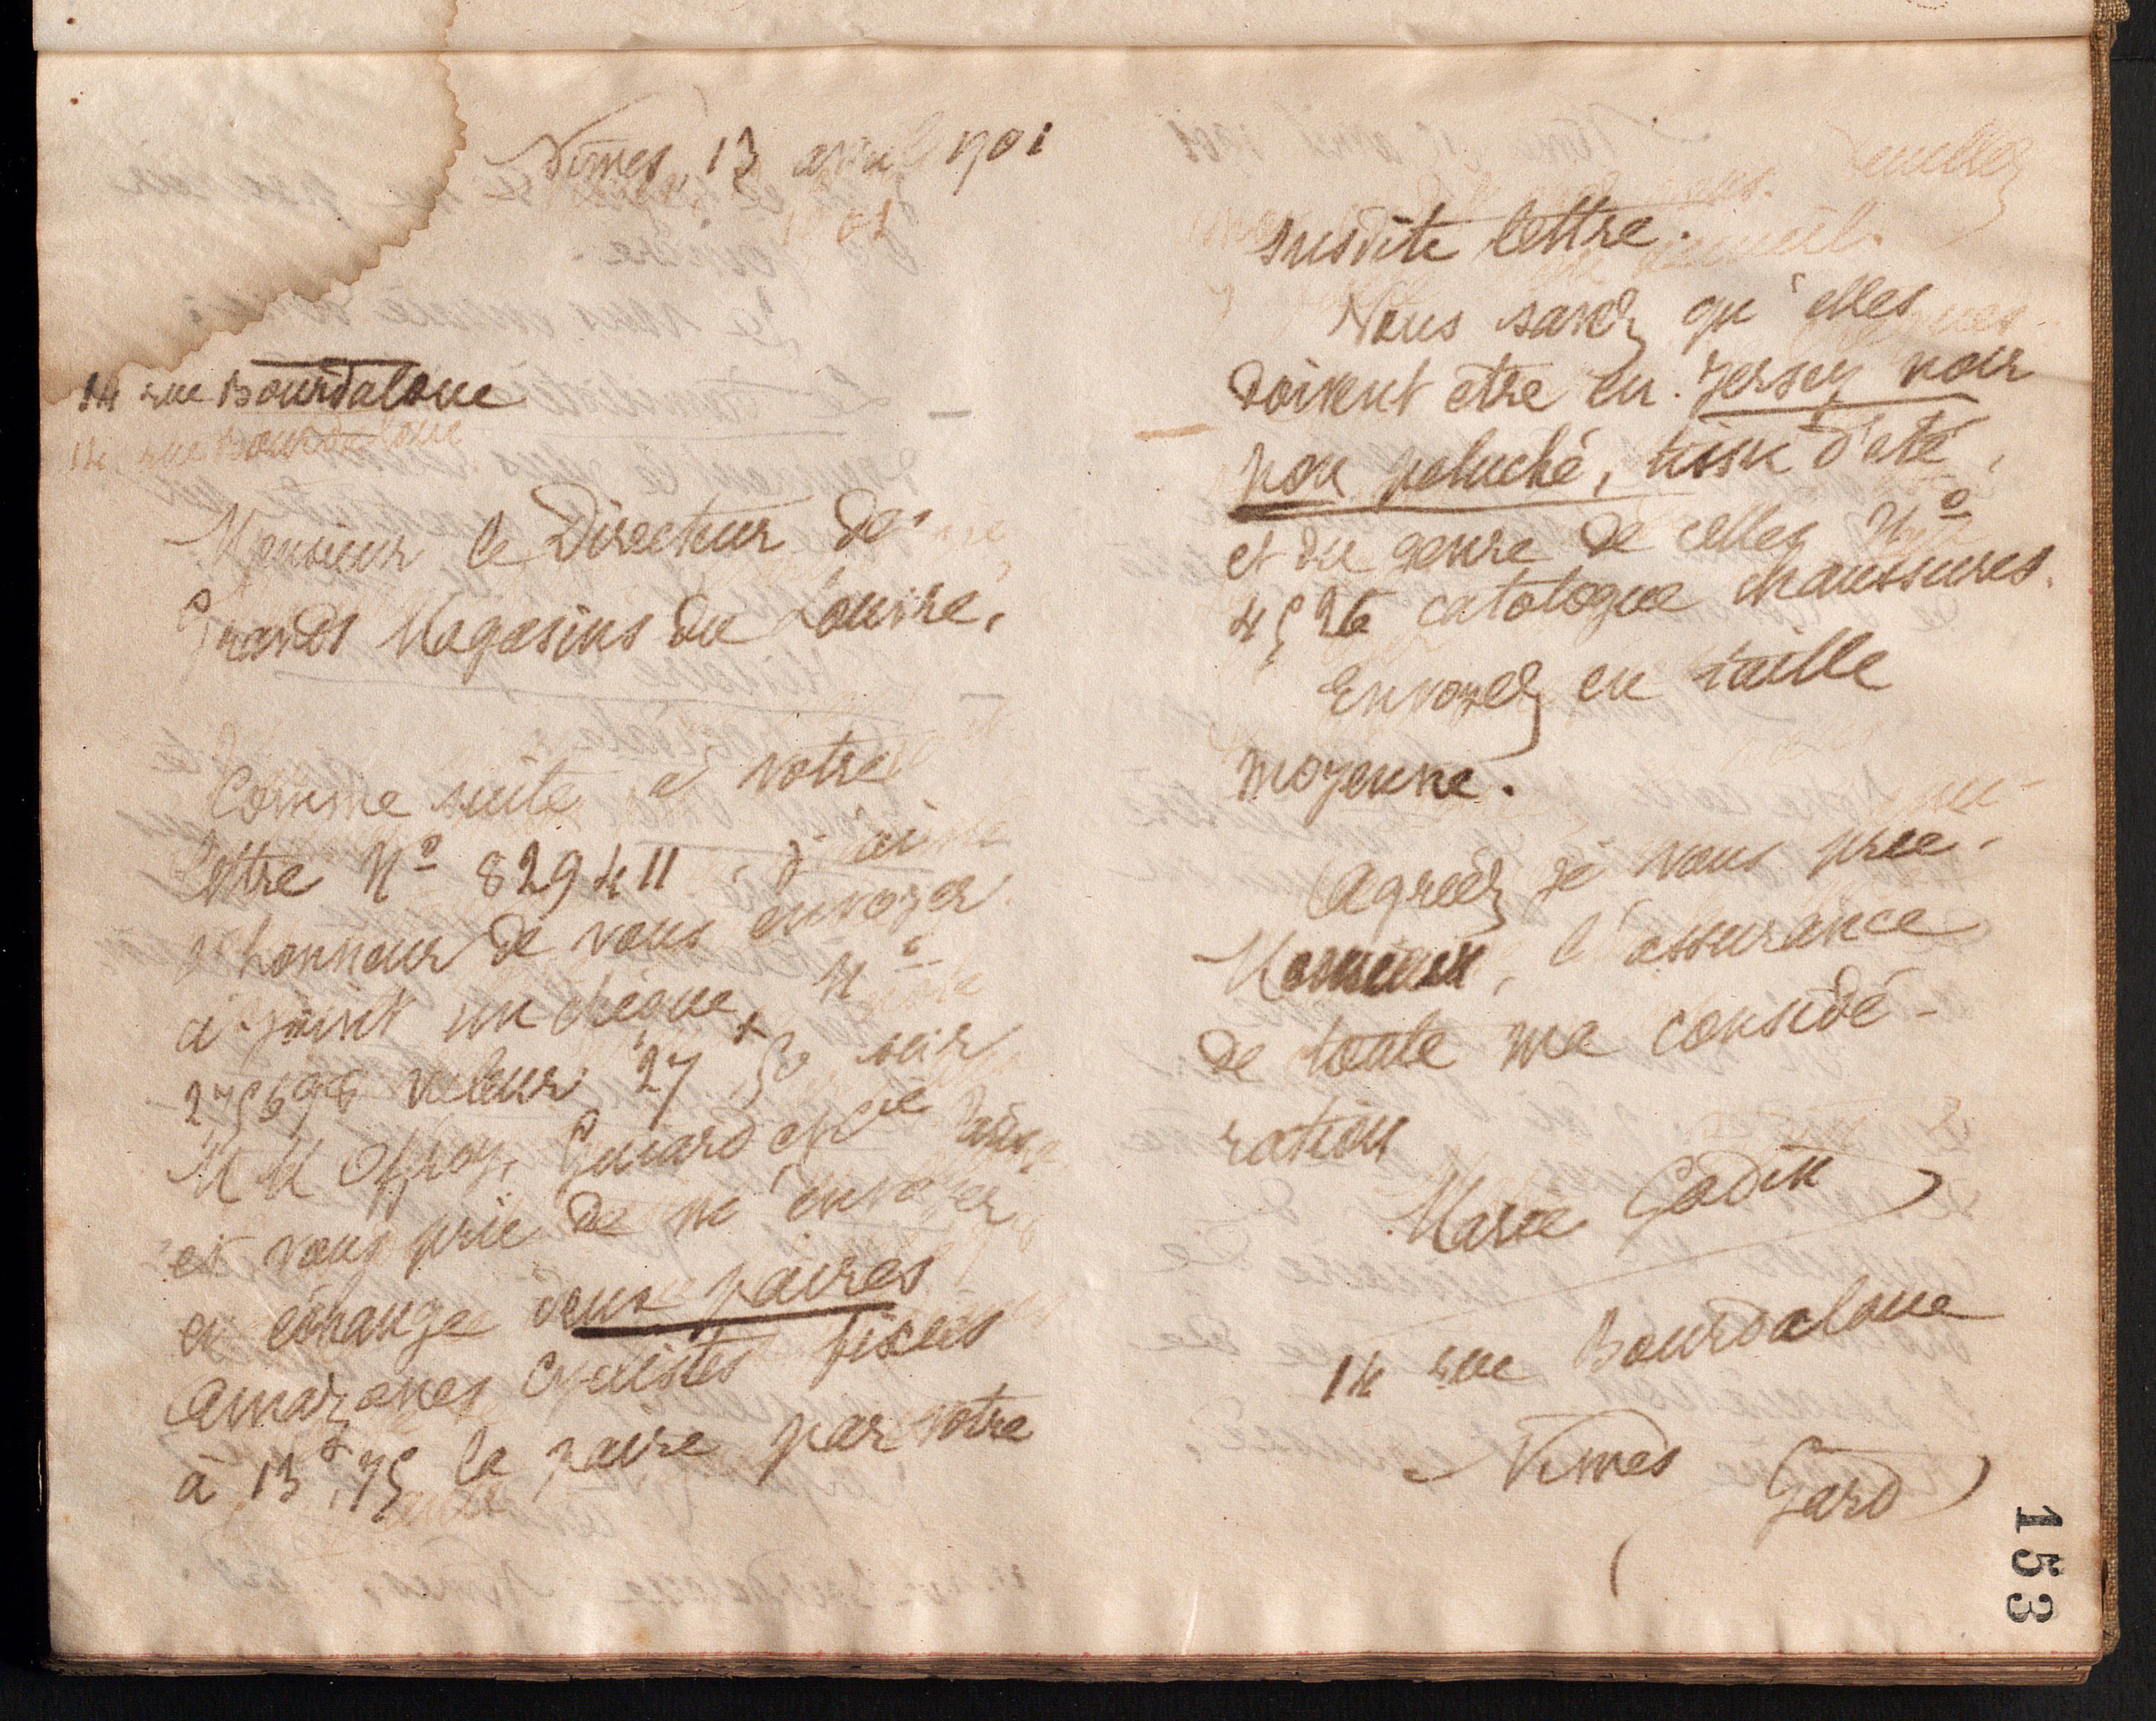 Nîmes, 13 avril 1901
14 rue Bourdaloue
Monsieur le Directeur des
Grands Magasins du Louvre,
Comme suite à votre
lettre N° 829411, j'ai
l'honneur de vous envoyer
ci-joint un chèque, N°
275698 valeur 27f 50 sur
MM Offroy, Guiard et Cie Paris
et vous prie de m'envoyer
en échange deux paires
amazones cyclistes fixées
à 13f,75 la paire par votre
susdite lettre.
Vous savez qu'elles
doivent etre en Jersey noir
non peluché, tissu d'été,
et du genre de celles N°
4526 catalogue chaussures.
Envoyez en taille
moyenne.
Agréez je vous prie,
Monsieur, l'assurance
de toute ma considé-
ration
Marie Godin
14 rue Bourdaloue
Nîmes
(Gard)
153